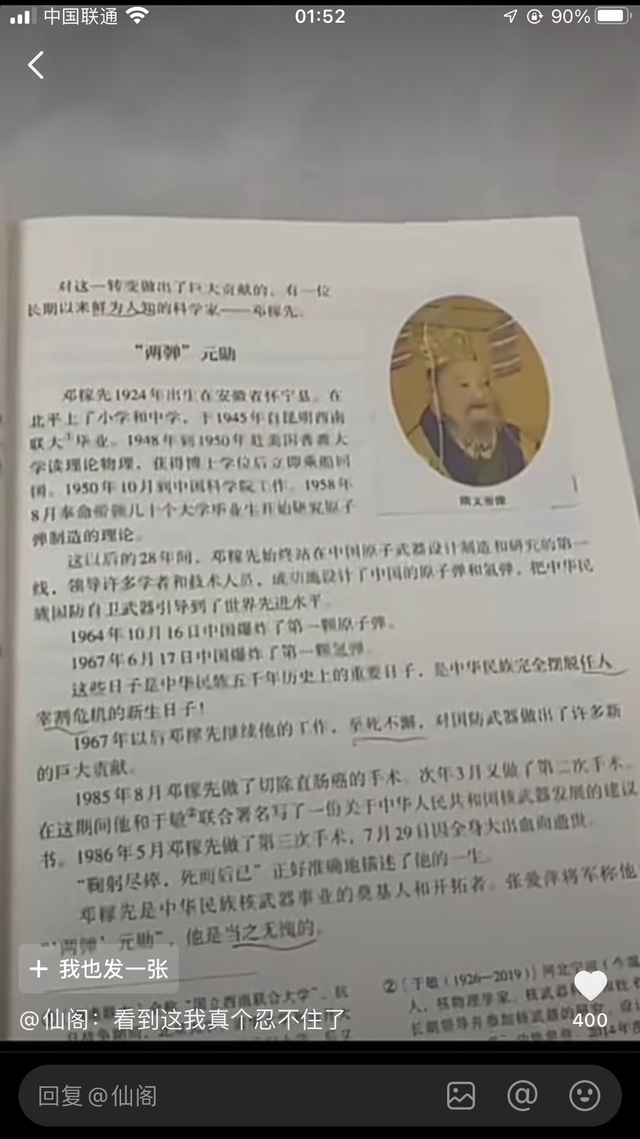 中国联通
01:52
90%
对这一转变做出了巨大贡献的，有一位
长期以来鲜为人知的科学家——邓稼先。
“两弹”元勋
邓稼先1924年出生在安徽省怀宁县。在
北平上了小学和中学，于1945年自昆明西南
联大①毕业。1948年到1950年赴美国普渡大
学读理论物理，获得博士学位后立即乘船回
国。1950年10月到中国科学院工作。1958年
8月奉命带领几十个大学毕业生开始研究原子
弹制造的理论。
隋文帝像
这以后的28年间，邓稼先始终站在中国原子武器设计制造和研究的第一
线，领导许多学者和技术人员，成功地设计了中国的原子弹和氢弹，把中华民
族国防自卫武器引导到了世界先进水平。
1964年10月16日中国爆炸了第一颗原子弹。
1967年6月17日中国爆炸了第一颗氢弹。
这些日子是中华民族五千年历史上的重要日子，是中华民族完全摆脱任人
宰割危机的新生日子！
1967年以后邓稼先继续他的工作，至死不懈，对国防武器做出了许多新
的巨大贡献。
1985年8月邓稼先做了切除直肠癌的手术。次年3月又做了第二次手术。
在这期间他和于敏②联合署名写了一份关于中华人民共和国核武器发展的建议
书。1986年5月邓稼先做了第三次手术，7月29日因全身大出血而逝世。
“鞠躬尽瘁，死而后已”正好准确地描述了他的一生。
邓稼先是中华民族核武器事业的奠基人和开拓者。张爱萍将军称他
“‘两弹’元勋”，他是当之无愧的。
+ 我也发一张
②〔于敏（1926—2019）〕河北宁河（今属
“国立西南联合大学”，抗
人，核物理学家，核武器
长期领导并参加核武器的研究、设
@仙阁：看到这我真个忍不住了
400
回复 @仙阁